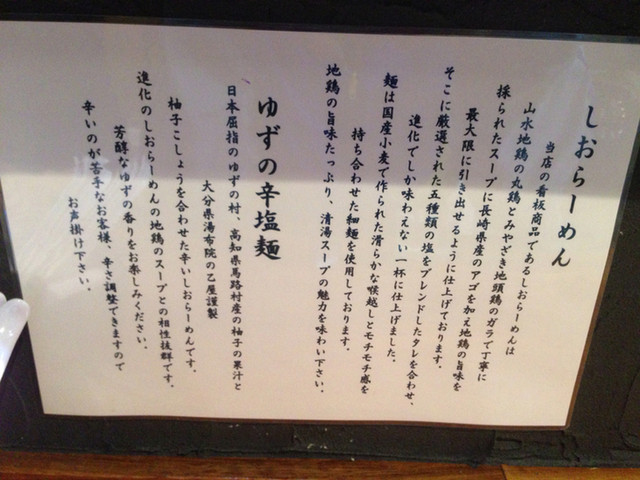 しおらーめん
当店の看板商品であるしおらーめんは
山水地鶏の丸鶏とみやざき地頭鶏のガラで丁寧に
採られたスープに長崎県産のアゴを加え地鶏の旨味を
最大限に引き出せるように仕上げております。
そこに厳選された五種類の塩をブレンドしたタレを合わせ、
進化でしか味わえない一杯に仕上げました。
麺は国産小麦で作られた滑らかな喉越しとモチモチ感を
持ち合わせた細麺を使用しております。
地鶏の旨味たっぷり、清湯スープの魅力を味わい下さい。
ゆずの辛塩麺
日本屈指のゆずの村、高知県馬路村産の柚子の果汁と
大分県湯布院の乙屋謹製
柚子こしょうを合わせた辛いしおらーめんです。
進化のしおらーめんの地鶏のスープとの相性抜群です。
芳醇なゆずの香りをお楽しみください。
辛いのが苦手なお客様、辛さ調整できますので
お声掛け下さい。